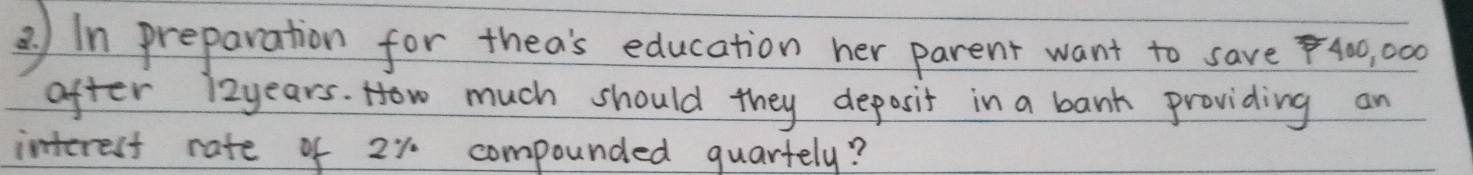 2.) In preparation for thea's education her parent want to save ₱400,000
after 12years. How much should they deposit in a bank providing an
interest rate of 2% compounded quartely?